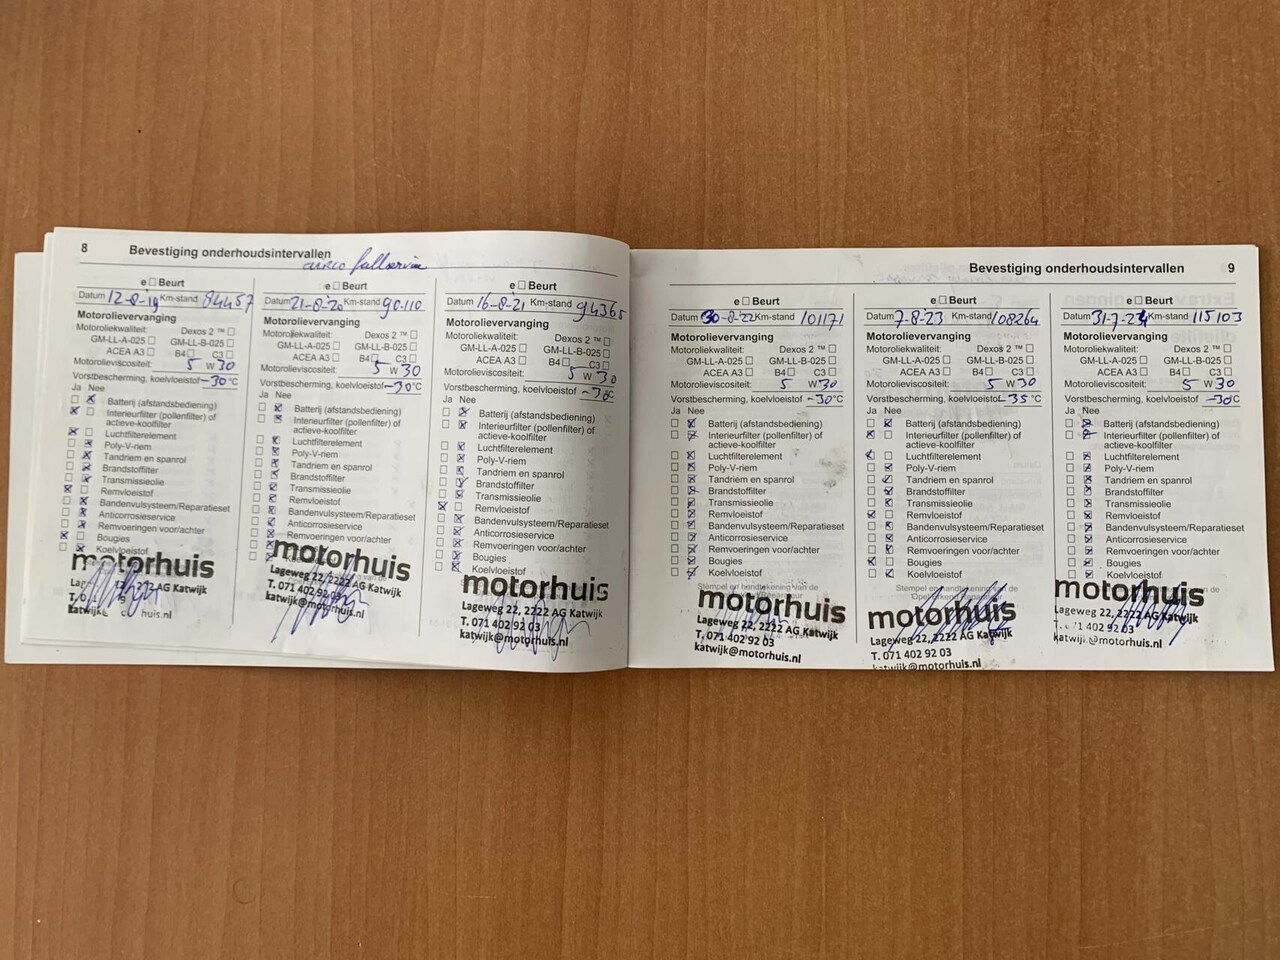 8 Bevestiging onderhoudsintervallen
e □ Beurt
Datum 12-8-19 Km-stand 84457
Motorolievervanging
Motoroliekwaliteit: Dexos 2 ™ □
GM-LL-A-025 □ GM-LL-B-025 □
ACEA A3 □ B4 □ C3 □
Motorolieviscositeit: 5 W 30
Vorstbescherming, koelvloeistof -30 °C
Ja Nee
Batterij (afstandsbediening)
Interieurfilter (pollenfilter) of
actieve-koolfilter
Luchtfilterelement
Poly-V-riem
Tandriem en spanrol
Brandstoffilter
Transmissieolie
Remvloeistof
Bandenvulsysteem/Reparatieset
Anticorrosieservice
Remvoeringen voor/achter
Bougies
Koelvloeistof
motorhuis
AG Katwijk
huis.nl
e □ Beurt
Datum 21-8-20 Km-stand 90.110
Motorolievervanging
Motoroliekwaliteit: Dexos 2 ™ □
GM-LL-A-025 □ GM-LL-B-025 □
ACEA A3 □ B4 □ C3 □
Motorolieviscositeit: 5 W 30
Vorstbescherming, koelvloeistof -30 °C
Ja Nee
Batterij (afstandsbediening)
Interieurfilter (pollenfilter) of
actieve-koolfilter
Luchtfilterelement
Poly-V-riem
Tandriem en spanrol
Brandstoffilter
Transmissieolie
Remvloeistof
Bandenvulsysteem/Reparatieset
Anticorrosieservice
Remvoeringen voor/achter
Bougies
motorhuis
Lageweg 22, 2222 AG Katwijk
T. 071 402 92 03
katwijk@motorhuis.nl
e □ Beurt
Datum 16-8-21 Km-stand 94365
Motorolievervanging
Motoroliekwaliteit: Dexos 2 ™ □
GM-LL-A-025 □ GM-LL-B-025 □
ACEA A3 □ B4 □ C3 □
Motorolieviscositeit: 5 W 30
Vorstbescherming, koelvloeistof -30°C
Ja Nee
Batterij (afstandsbediening)
Interieurfilter (pollenfilter) of
actieve-koolfilter
Luchtfilterelement
Poly-V-riem
Tandriem en spanrol
Brandstoffilter
Transmissieolie
Remvloeistof
Bandenvulsysteem/Reparatieset
Anticorrosieservice
Remvoeringen voor/achter
Bougies
Koelvloeistof
motorhuis
Lageweg 22, 2222 AG Katwijk
T. 071 402 92 03
katwijk@motorhuis.nl
Bevestiging onderhoudsintervallen 9
e □ Beurt
Datum 30-8-22 Km-stand 101171
Motorolievervanging
Motoroliekwaliteit: Dexos 2 ™ □
GM-LL-A-025 □ GM-LL-B-025 □
ACEA A3 □ B4 □ C3 □
Motorolieviscositeit: 5 W 30
Vorstbescherming, koelvloeistof -30°C
Ja Nee
Batterij (afstandsbediening)
Interieurfilter (pollenfilter) of
actieve-koolfilter
Luchtfilterelement
Poly-V-riem
Tandriem en spanrol
Brandstoffilter
Transmissieolie
Remvloeistof
Bandenvulsysteem/Reparatieset
Anticorrosieservice
Remvoeringen voor/achter
Bougies
Koelvloeistof
Stempel en handtekening van de
motorhuis
Lageweg 22, 2222 AG Katwijk
T. 071 402 92 03
katwijk@motorhuis.nl
e □ Beurt
Datum 7-8-23 Km-stand 108264
Motorolievervanging
Motoroliekwaliteit: Dexos 2 ™ □
GM-LL-A-025 □ GM-LL-B-025 □
ACEA A3 □ B4 □ C3 □
Motorolieviscositeit: 5 W 30
Vorstbescherming, koelvloeistof -35°C
Ja Nee
Batterij (afstandsbediening)
Interieurfilter (pollenfilter) of
actieve-koolfilter
Luchtfilterelement
Poly-V-riem
Tandriem en spanrol
Brandstoffilter
Transmissieolie
Remvloeistof
Bandenvulsysteem/Reparatieset
Anticorrosieservice
Remvoeringen voor/achter
Bougies
Koelvloeistof
Stempel en handtekening van de
motorhuis
Lageweg 22, 2222 AG Katwijk
T. 071 402 92 03
katwijk@motorhuis.nl
e □ Beurt
Datum 31-7-24 Km-stand 115103
Motorolievervanging
Motoroliekwaliteit: Dexos 2 ™ □
GM-LL-A-025 □ GM-LL-B-025 □
ACEA A3 □ B4 □ C3 □
Motorolieviscositeit: 5 W 30
Vorstbescherming, koelvloeistof -30°C
Ja Nee
Batterij (afstandsbediening)
Interieurfilter (pollenfilter) of
actieve-koolfilter
Luchtfilterelement
Poly-V-riem
Tandriem en spanrol
Brandstoffilter
Transmissieolie
Remvloeistof
Bandenvulsysteem/Reparatieset
Anticorrosieservice
Remvoeringen voor/achter
Bougies
Koelvloeistof
motorhuis
Lageweg 22, 2222 AG Katwijk
402 92 03
@motorhuis.nl